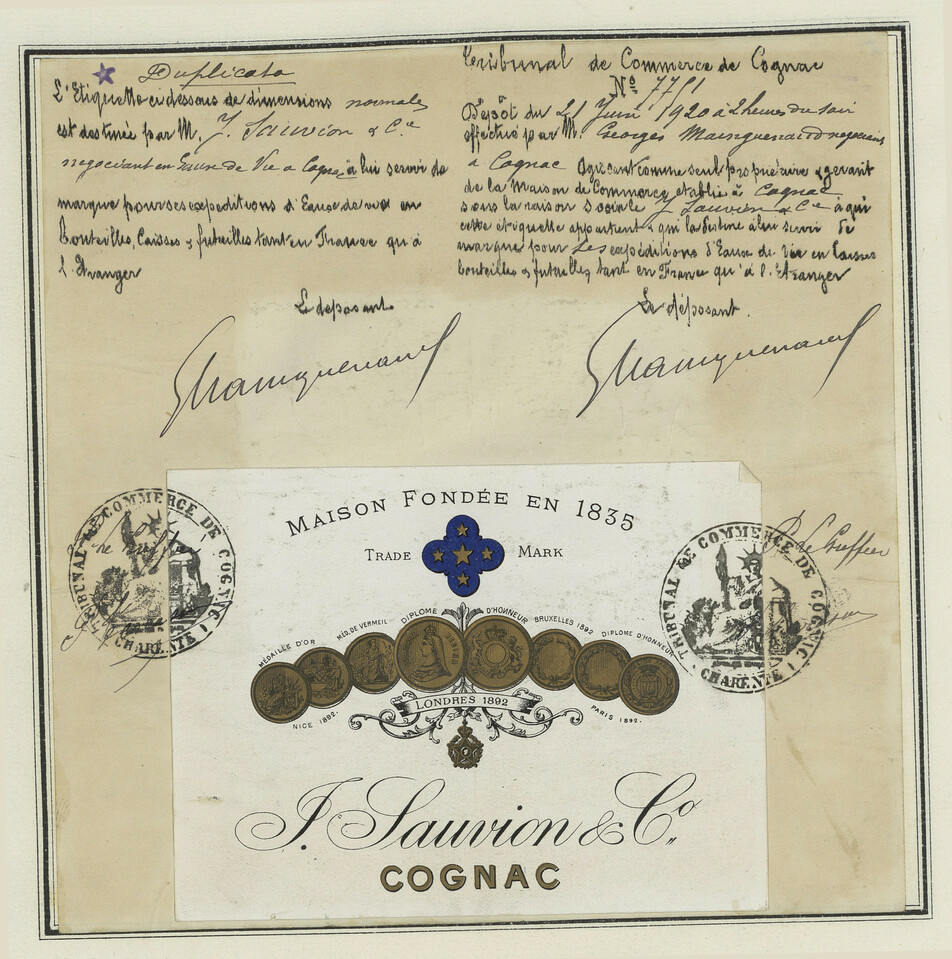 Duplicata
L'Etiquette ci dessous de dimensions normales
est destinée par M. J. Sauvion & Cie
negociant en Eaux de Vie a Cognac à lui servir de
marque pour ses expeditions d'Eaux de vie en
Bouteilles, Caisses & futailles tant en France qu'à
l'Etranger
Le deposant
Tribunal de Commerce de Cognac
No 7751
Dépôt du 21 Juin 1920 à 2 heures du soir
effectué par M. Georges Mainguenaud negociant
a Cognac Agissant comme seul propriétaire & gerant
de la Maison de Commerce etablie à Cognac
sous la raison sociale J. Sauvion & Cie à qui
cette etiquette appartient & qui la destine à leur servir de
marque pour ses expéditions d'Eaux de Vie en Caisses
bouteilles & futailles tant en France qu'à l'Etranger
Le déposant.
MAISON FONDÉE EN 1835
TRADE MARK
MÉDAILLE D'OR MÉD. DE VERMEIL DIPLOME D'HONNEUR BRUXELLES 1892 DIPLOME D'HONNEUR
NICE 1892. LONDRES 1892 PARIS 1892.
J. Sauvion & Co.
COGNAC
TRIBUNAL DE COMMERCE DE COGNAC
CHARENTE
TRIBUNAL DE COMMERCE DE COGNAC
CHARENTE